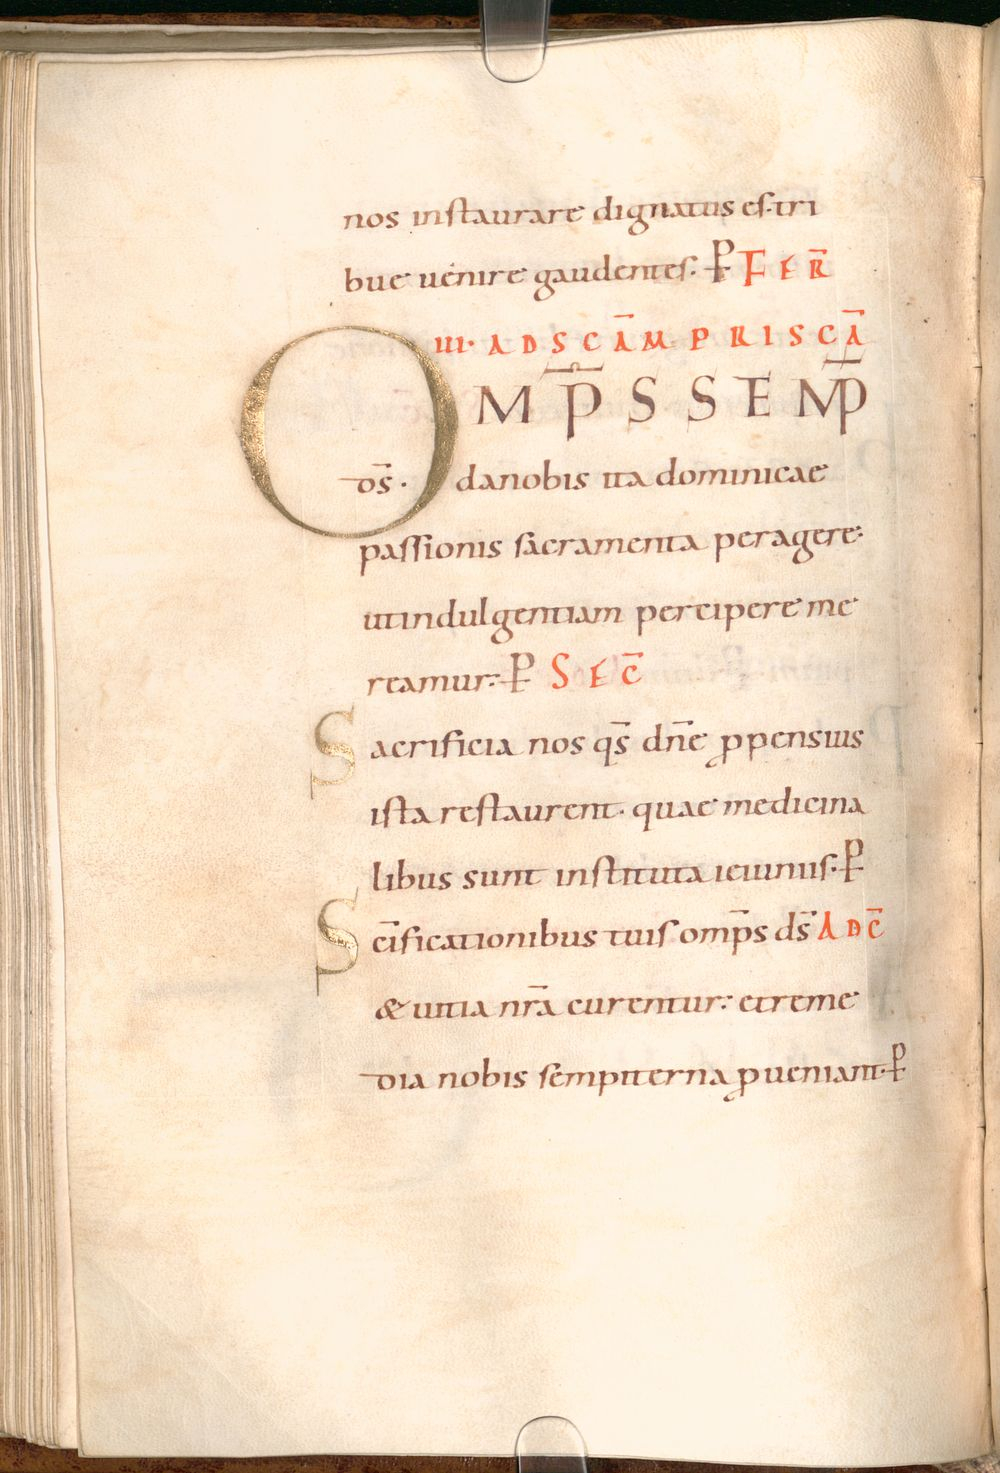 nos instaurare dignatus es· tri
bue uenire gaudentes· ꝑ FER̄
III· AD SC̄AM PRISCĀ
OMP̄S SEMP̄
ds̄· da nobis ita dominicae
passionis sacramenta peragere·
ut indulgentiam percipere me
reamur· ꝑ SEC̄
Sacrificia nos qs̄ dn̄e ꝓpensius
ista restaurent· quae medicina
libus sunt instituta ieiuniis· ꝑ
Sc̄ificationibus tuis omp̄s ds̄ AD C̄
& uitia nr̄a curentur· et reme
dia nobis sempiterna ꝓueniant· ꝑ